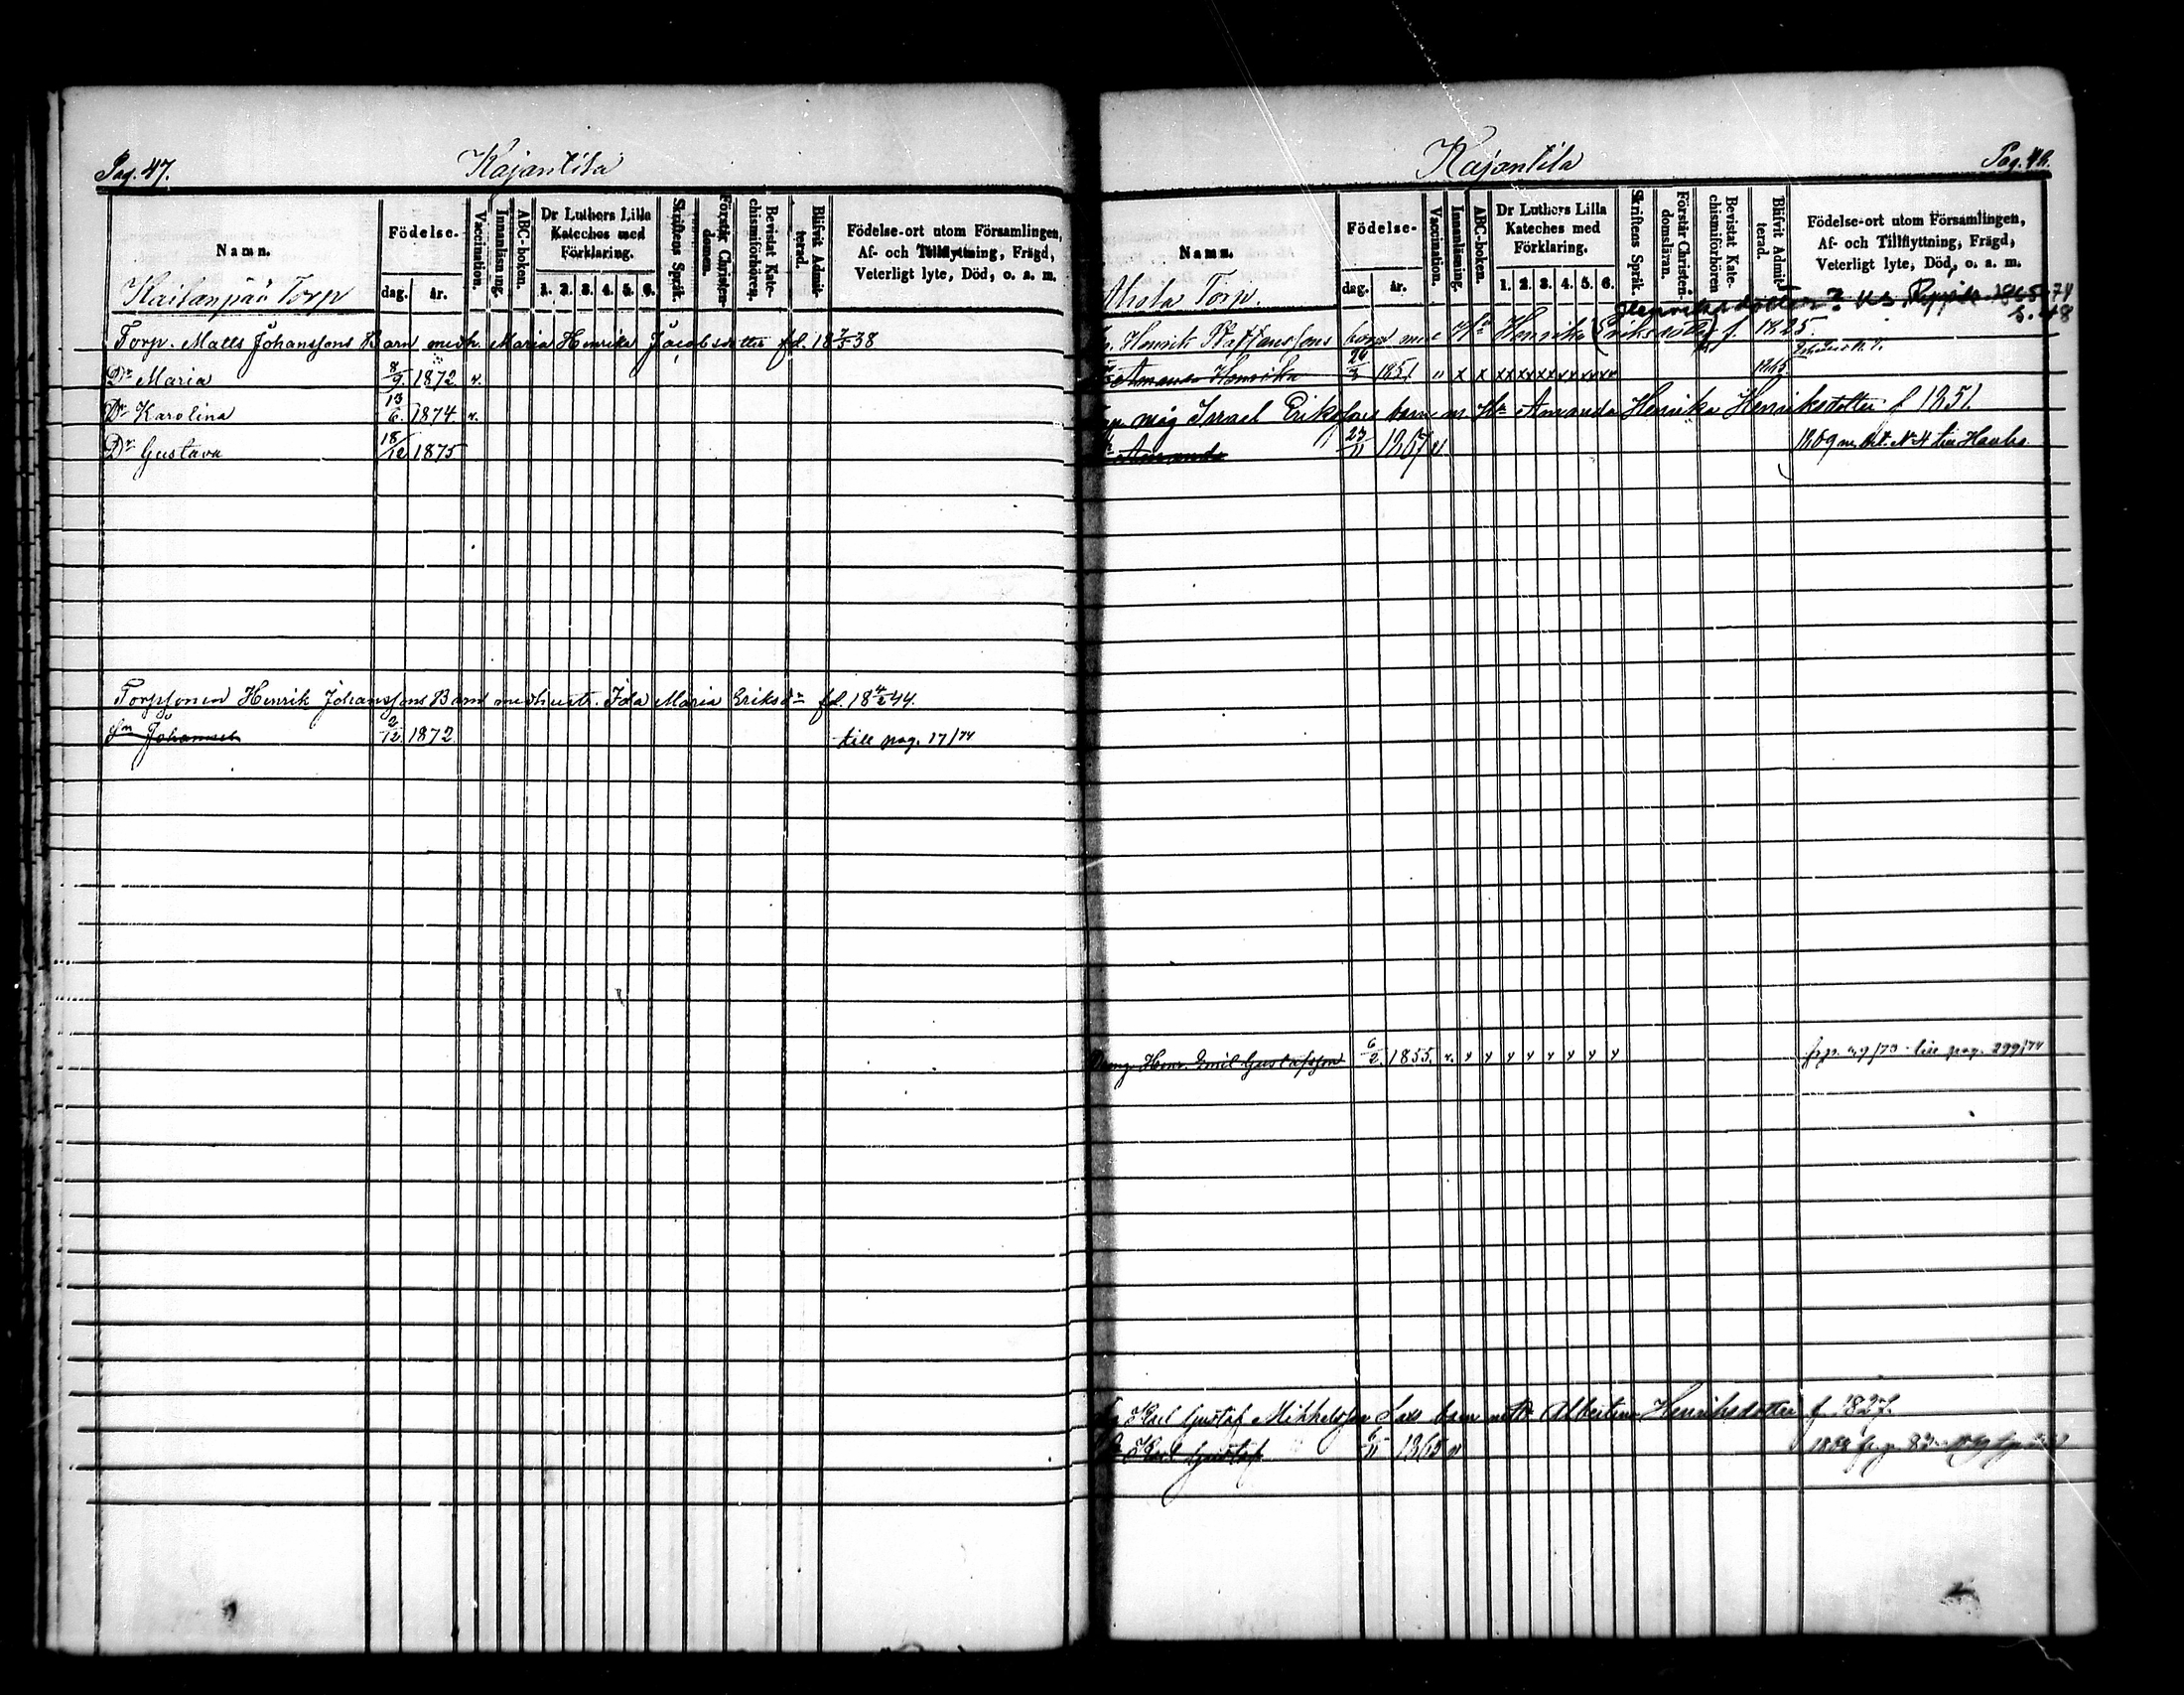 Pag. 47.
Kajantila
Namn.
Födelse-
dag.
år.
Vaccination.
Innanläsning.
ABC-boken.
Dr Luthers Lilla Kateches med Förklaring.
1. 2. 3. 4. 5. 6.
Skriftens Språk.
Förstår Christen-domen.
Bevistat Kate-chismiförhören.
Blifvit Admit-terad.
Födelse-ort utom Församlingen,
Af- och Tillflyttning, Frägd,
Veterligt lyte, Död, o. a. m.
Torp
Torp. Matts Johanssons Barn med h. Maria Henrika Jacobsdotter fd. 18 38
Dr Maria 8/9 1872 v.
Dr Karolina 13/6 1874 v.
Dr Gustava 18/12 1875
Torpsonen Henrik Johanssons Barn med hustr. Ida Maria Eriksdr fd. 18 4/2 44.
Sn Johannes 2/12 1872 till pag. 17/74
Kajantila
Pag. 48.
Namn.
Födelse-
dag.
år.
Vaccination.
Innanläsning.
ABC-boken.
Dr Luthers Lilla Kateches med Förklaring.
1. 2. 3. 4. 5. 6.
Skriftens Språk.
Förstår Christen-domsläran.
Bevistat Kate-chismiförhören
Blifvit Admit-terad.
Födelse-ort utom Församlingen,
Af- och Tillflyttning, Frägd,
Veterligt lyte, Död, o. a. m.
Ahola Torp.
Henriksdotter? Rippik. 1865-74
s. 48
Henrik Staffanssons barn med Hu Henrika (Eriksdotter) f. 1825.
Amanda Henrika 1851 " x x xx xx xx xx xx xx 1865
måg Israel Erikssons barn m Hu Amanda Henrika Henriksdotter f 1851.
Amanda 23/11 1867 v 1869
Henr. Emil Gustafsson 6/2 1855. v. y y y y y y y y till pag. 299/74
Karl Gustaf Mikkelsson barn med Albertina Henriksdotter f. 1827.
Karl Gustaf 6/11 1865 v